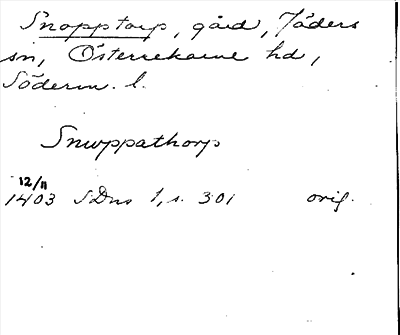 Snopptorp, gård, Jäders
sn, Österrekarne hd,
Söderm. l.
Snuppathorp
12/11
1403 SDns 1, s. 301 orig.